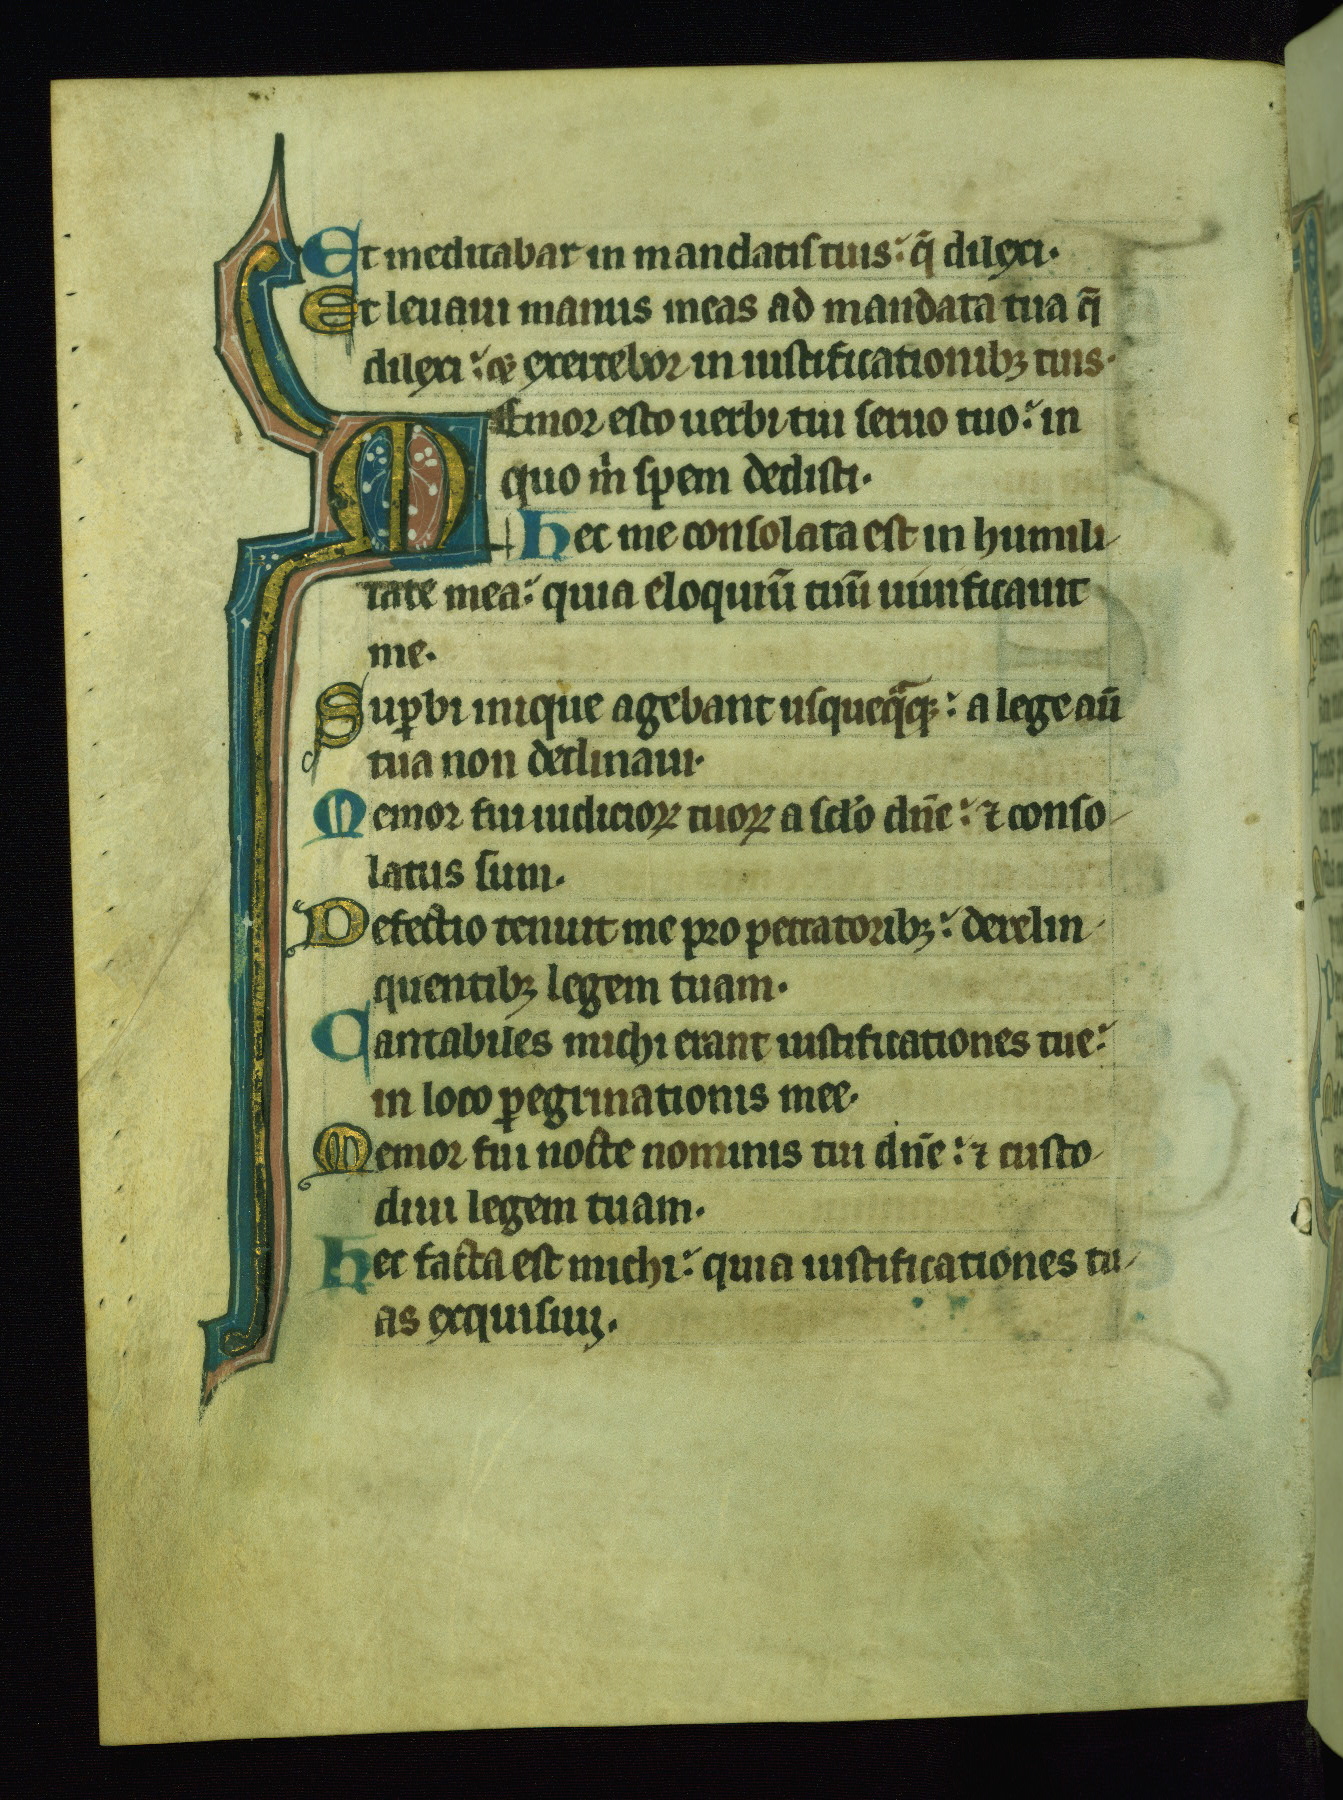 Et meditabar in mandatis tuis: q̄ dilexi.
Et leuaui manus meas ad mandata tua q̄
dilexi: et exercebor in iustificationibꝫ tuis.
Memor esto uerbi tui seruo tuo: in
quo m̄ spem dedisti.
hec me consolata est in humili
tate mea: quia eloquiū tuū uiuificauit
me.
Suꝑbi inique agebant usqueq̄qꝫ: a lege aū
tua non declinaui.
Memor fui iudicioꝝ tuoꝝ a sclo dn̄e: ⁊ conso
latus sum.
Defectio tenuit me pro peccatoribꝫ: derelin
quentibꝫ legem tuam.
Cantabiles michi erant iustificationes tue:
in loco ꝑegrinationis mee.
Memor fui nocte nominis tui dn̄e: ⁊ custo
diui legem tuam.
hec facta est michi: quia iustificationes tu
as exquisiui.